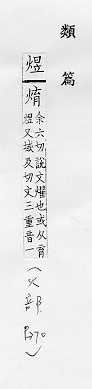 類篇
煜焴余六切說文燿也或从育
煜又域及切文三重音一
(火部 P370)